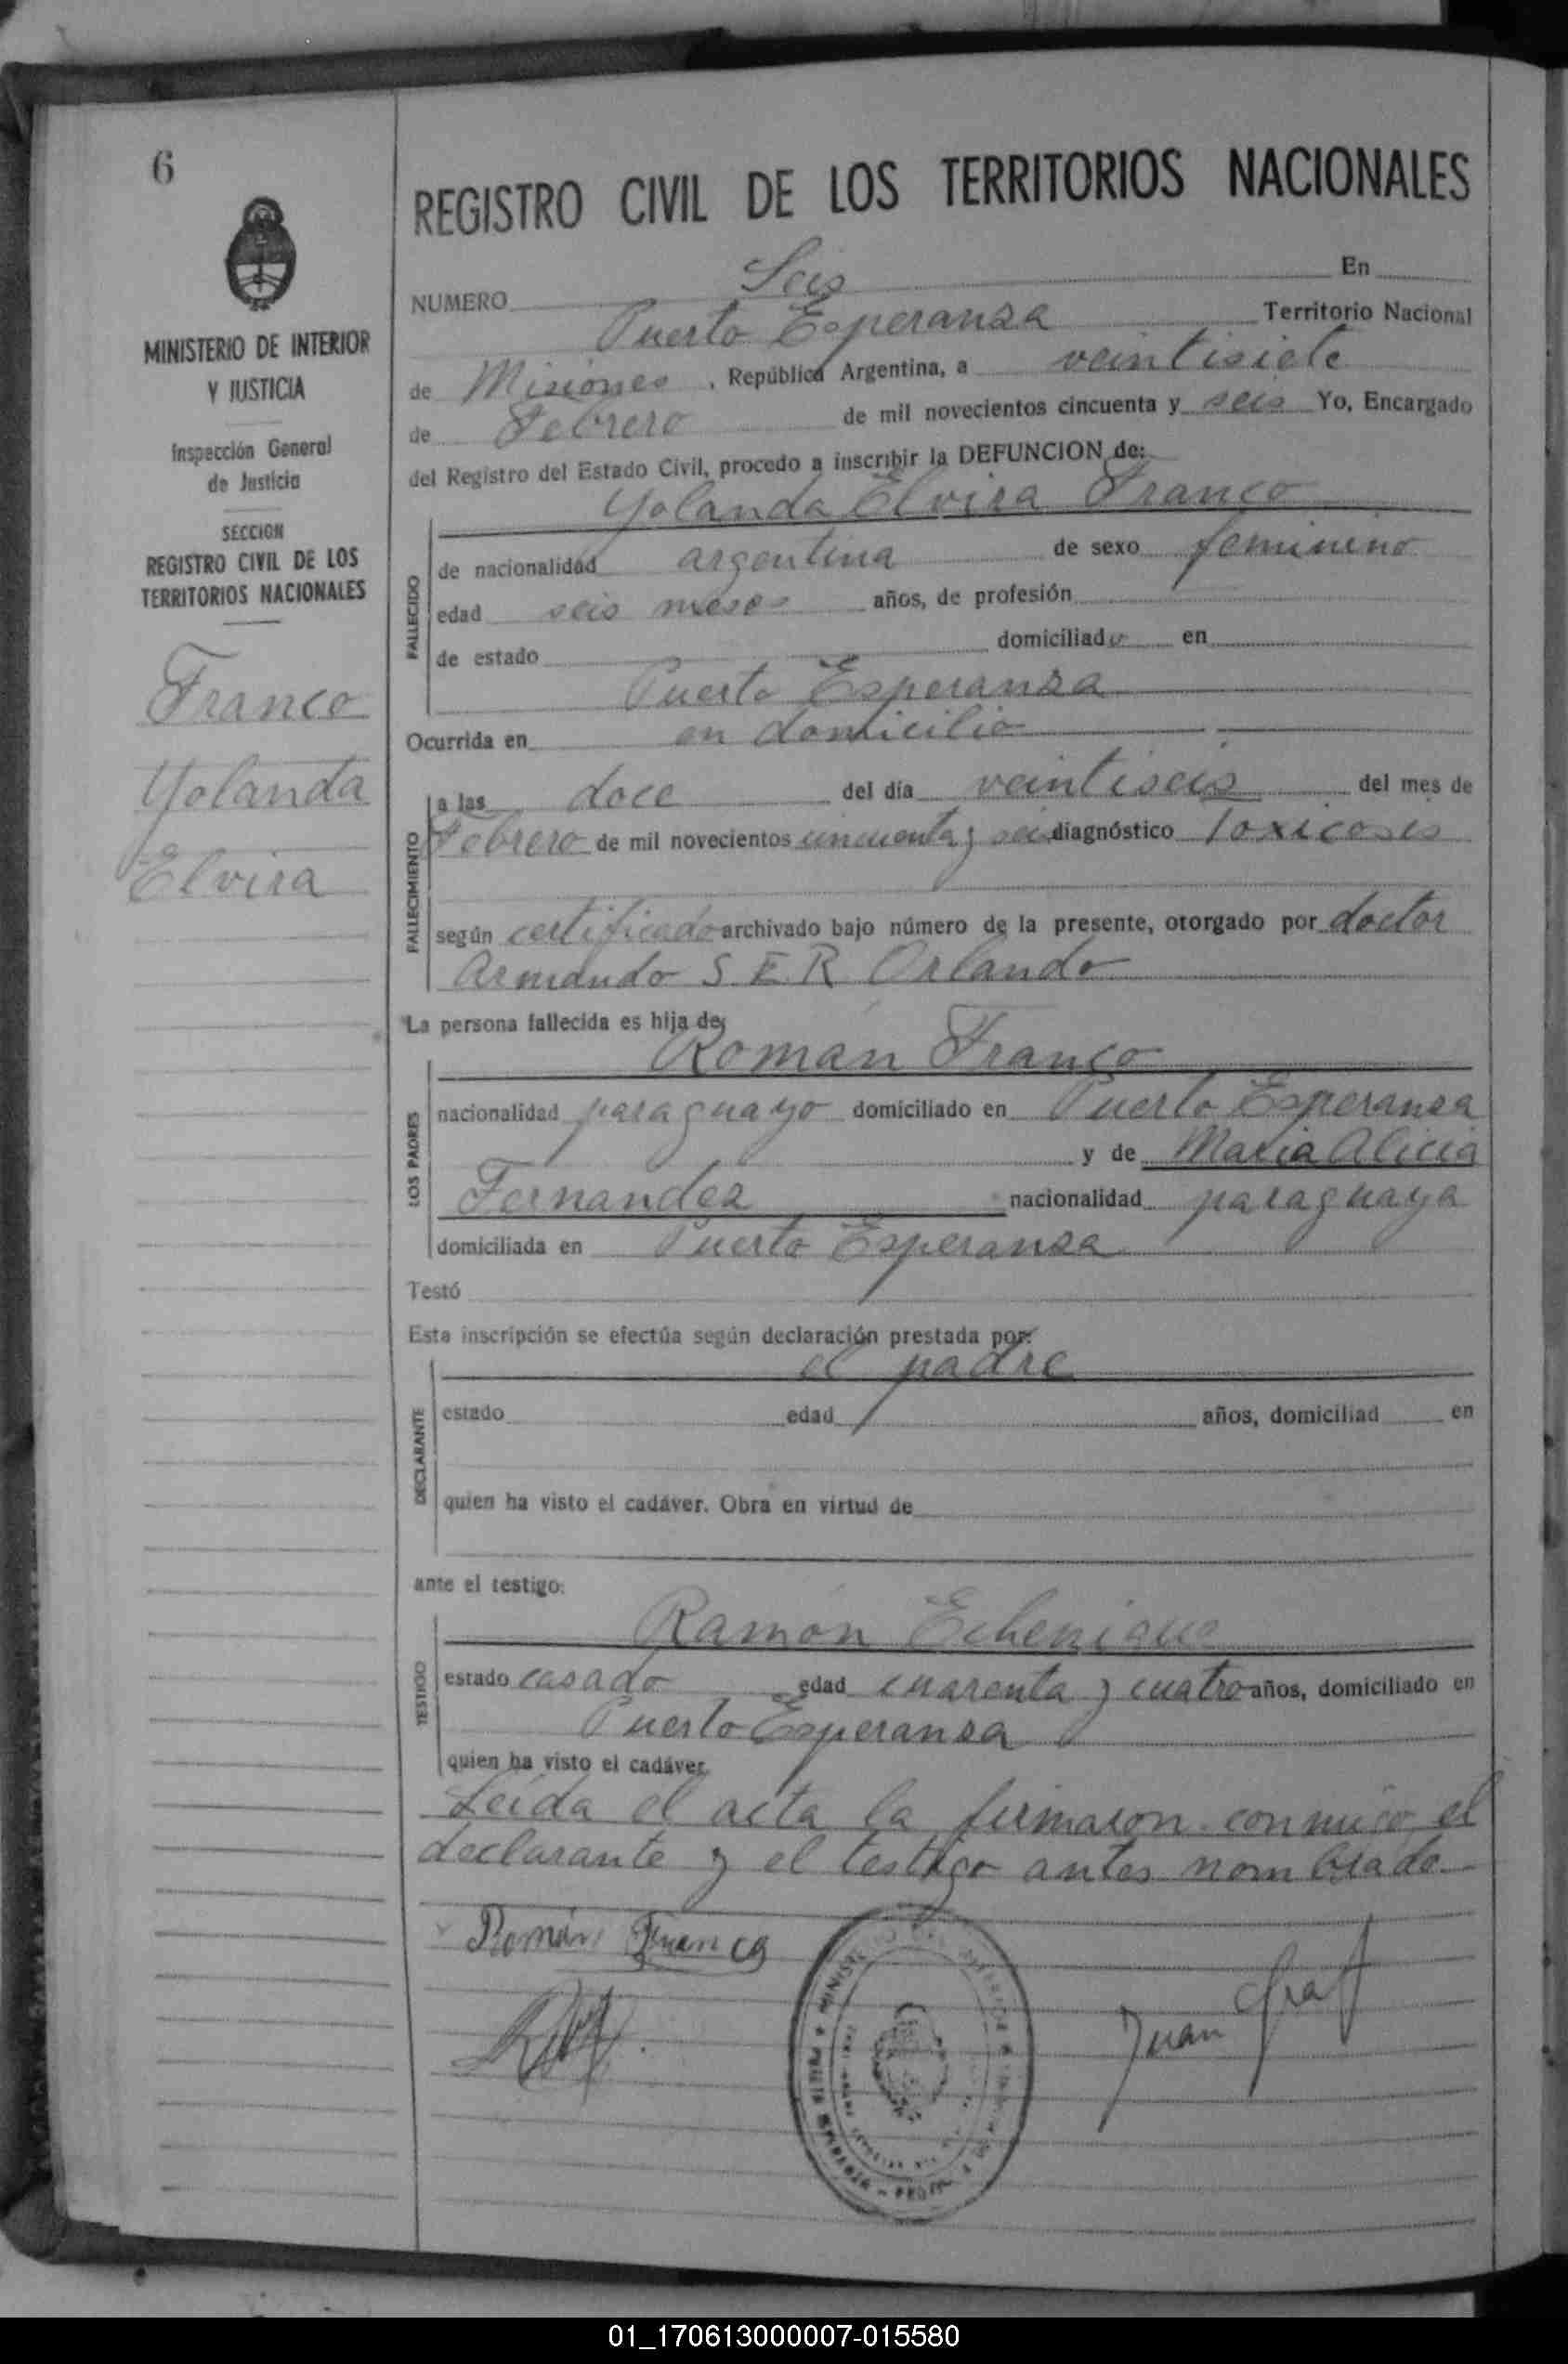 6
MINISTERIO DE INTERIOR
Y JUSTICIA
Inspección General
de Justicia
SECCION
REGISTRO CIVIL DE LOS
TERRITORIOS NACIONALES
Franco
Yolanda
Elvira
REGISTRO CIVIL DE LOS TERRITORIOS NACIONALES
NUMERO Seis En
Puerto Esperanza Territorio Nacional
de Misiones, República Argentina, a veintisiete
de Febrero de mil novecientos cincuenta y seis Yo, Encargado
del Registro del Estado Civil, procedo a inscribir la DEFUNCION de:
Yolanda Elvira Franco
FALLECIDO
de nacionalidad argentina de sexo feminino
edad seis meses años, de profesión
de estado domiciliado en
Puerto Esperanza
Ocurrida en en domicilio
FALLECIMIENTO
a las doce del día veintiseis del mes de
Febrero de mil novecientos cincuenta y seis diagnóstico Toxicosis
según certificado archivado bajo número de la presente, otorgado por doctor
Armando S.E.R Orlando
La persona fallecida es hija de:
LOS PADRES
Román Franco
nacionalidad paraguayo domiciliado en Puerto Esperanza
y de Maria Alicia
Fernandez nacionalidad paraguaya
domiciliada en Puerto Esperanza
Testó
Esta inscripción se efectúa según declaración prestada por:
DECLARANTE
el padre
estado edad años, domiciliad en
quien ha visto el cadáver. Obra en virtud de
ante el testigo:
TESTIGO
Ramón Echenique
estado casado edad cuarenta y cuatro años, domiciliado en
Puerto Esperanza
quien ha visto el cadáver.
Leída el acta la firmaron conmigo el
declarante y el testigo antes nombrado
Román Franco
Juan Graf
01_170613000007-015580